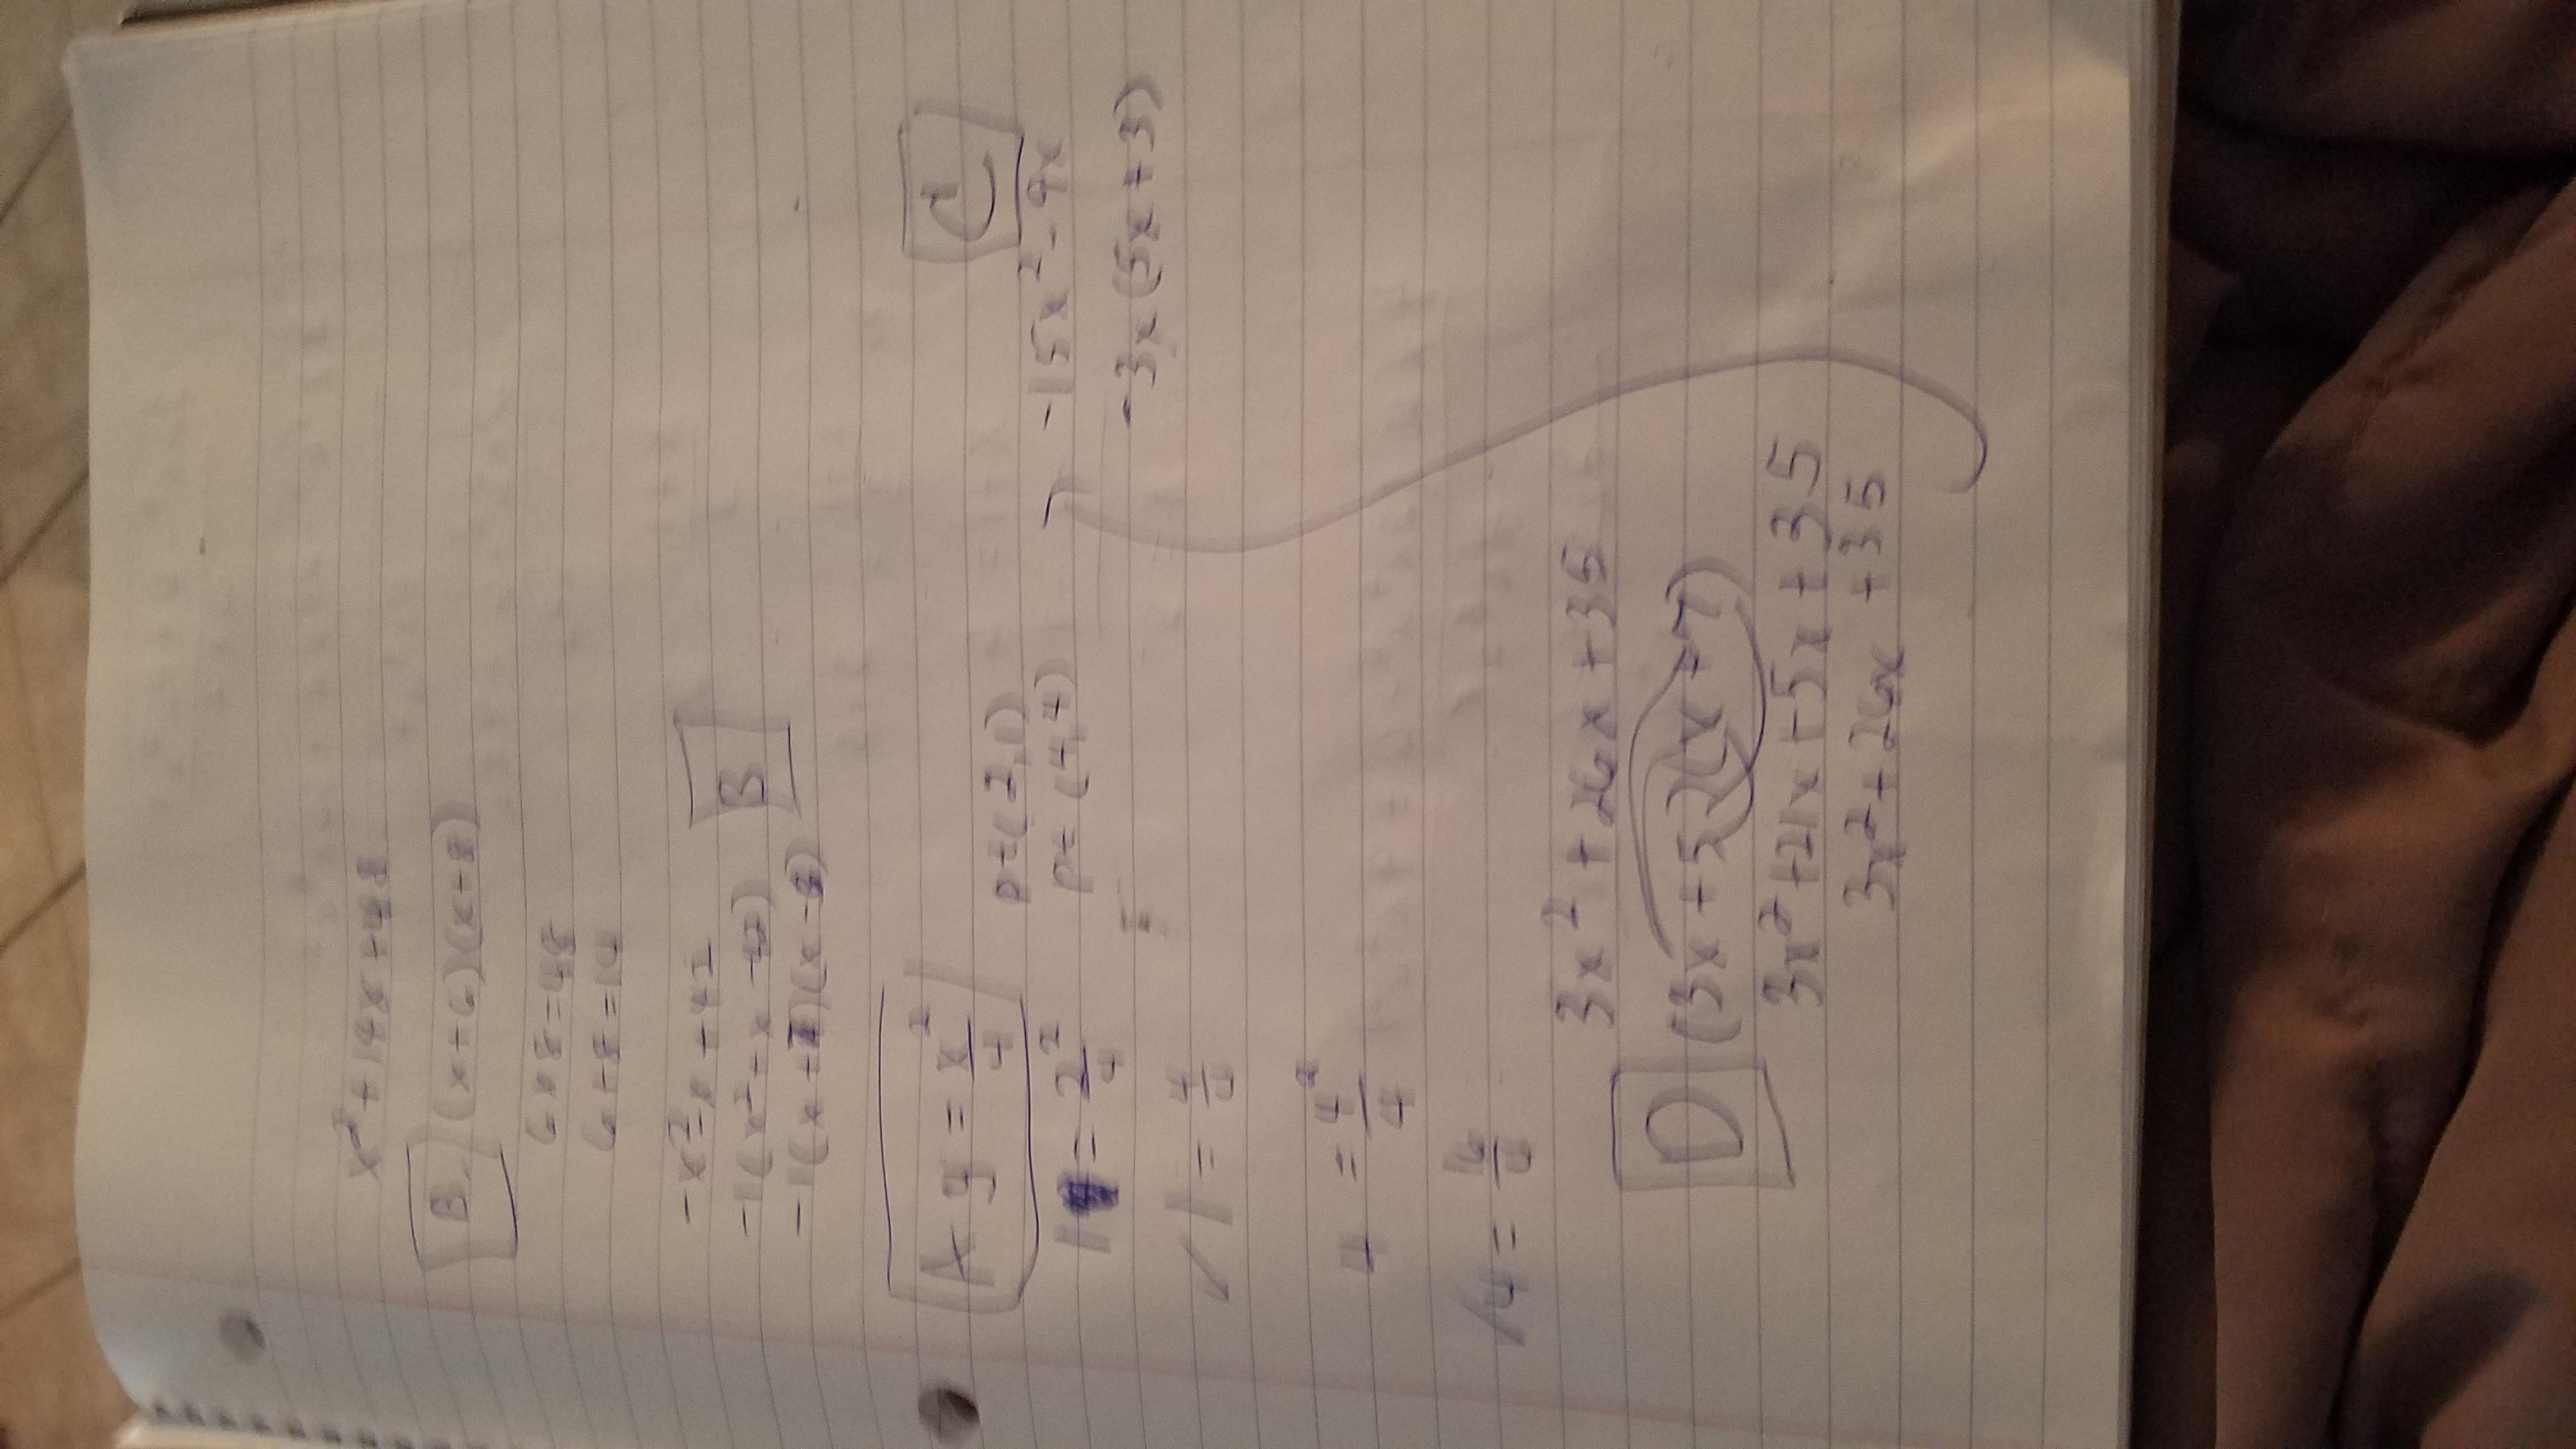 x² + 14x + 48
B. (x+6)(x+8)
6 x 8 = 48
6 + 8 = 14
-x² - x + 42
-1(x² + x - 42)
B
-1(x + 7)(x - 6)
A y = x²/4
pt (2,1)
1 = 2²/4
pt (4,4)
1 = 4/4
4 = 4²/4
4 = 16/4
C
-15x² - 9x
-3x(5x + 3)
3x² + 26x + 35
D (3x + 5)(x + 7)
3x² + 21x + 5x + 35
3x² + 26x + 35